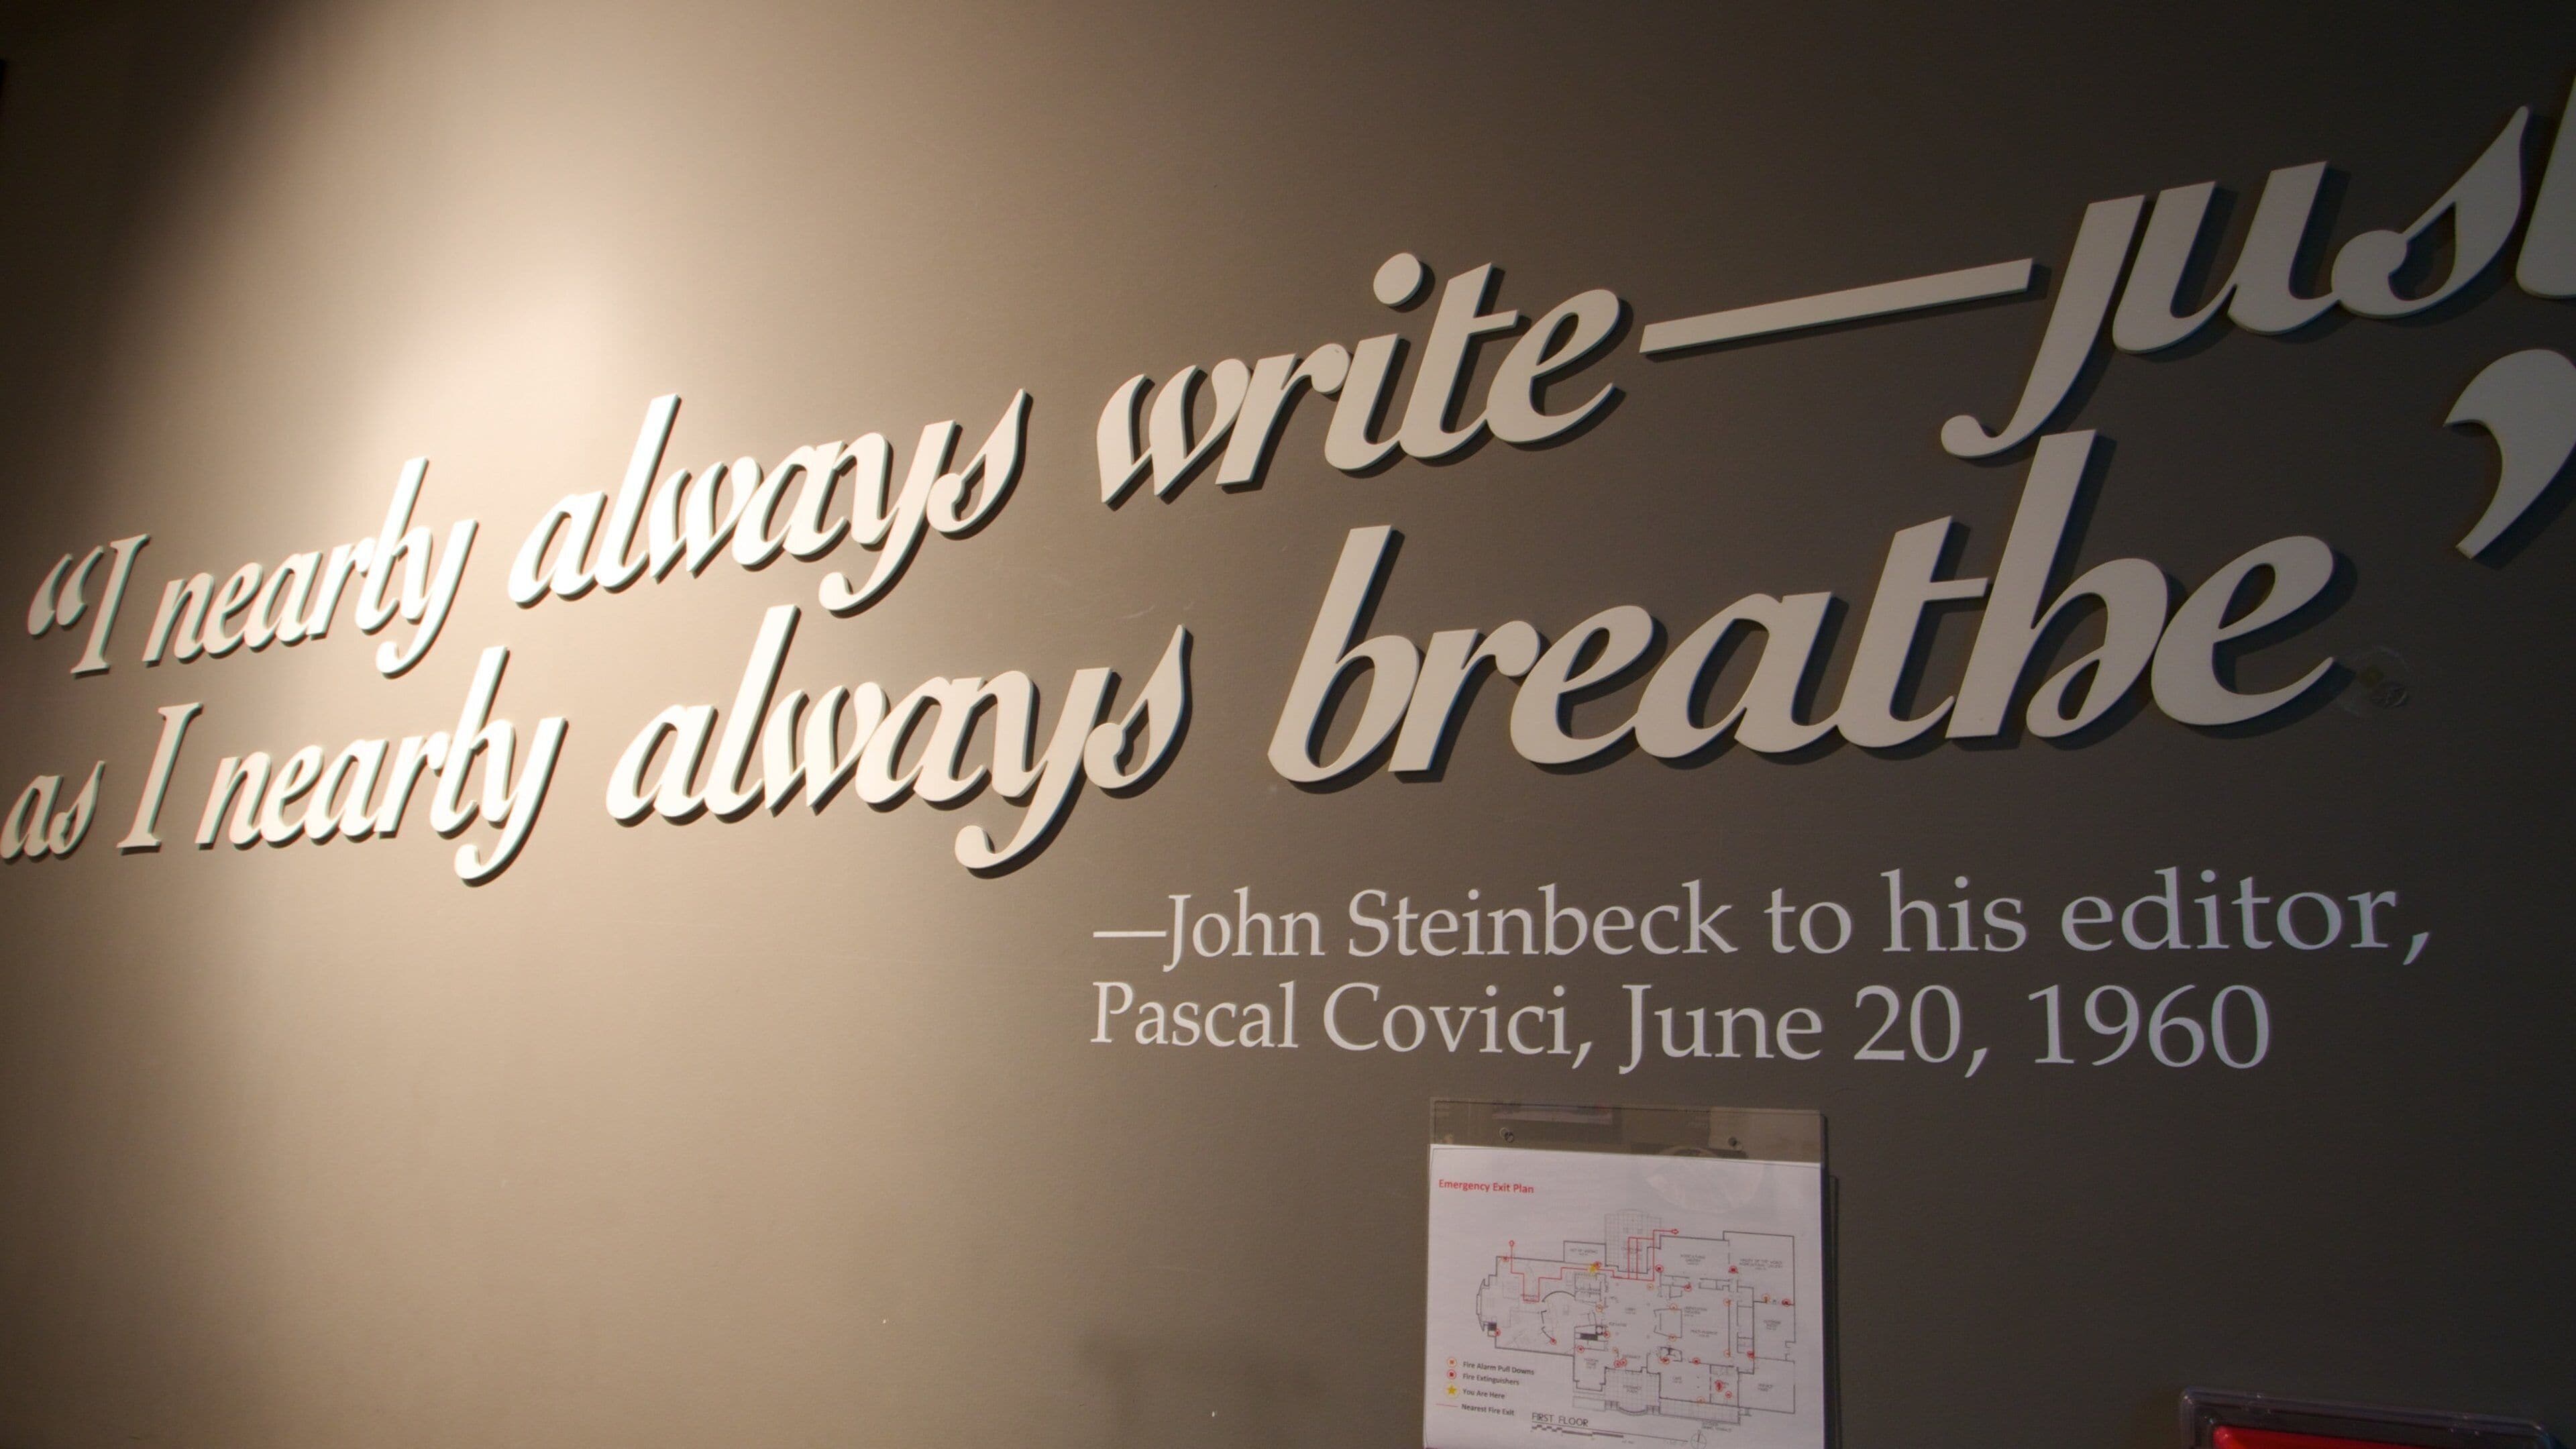 “I nearly always write—just
as I nearly always breathe”
—John Steinbeck to his editor,
Pascal Covici, June 20, 1960
Emergency Exit Plan
Fire Alarm Pull Downs
Fire Extinguishers
You Are Here
Nearest Fire Exit
FIRST FLOOR